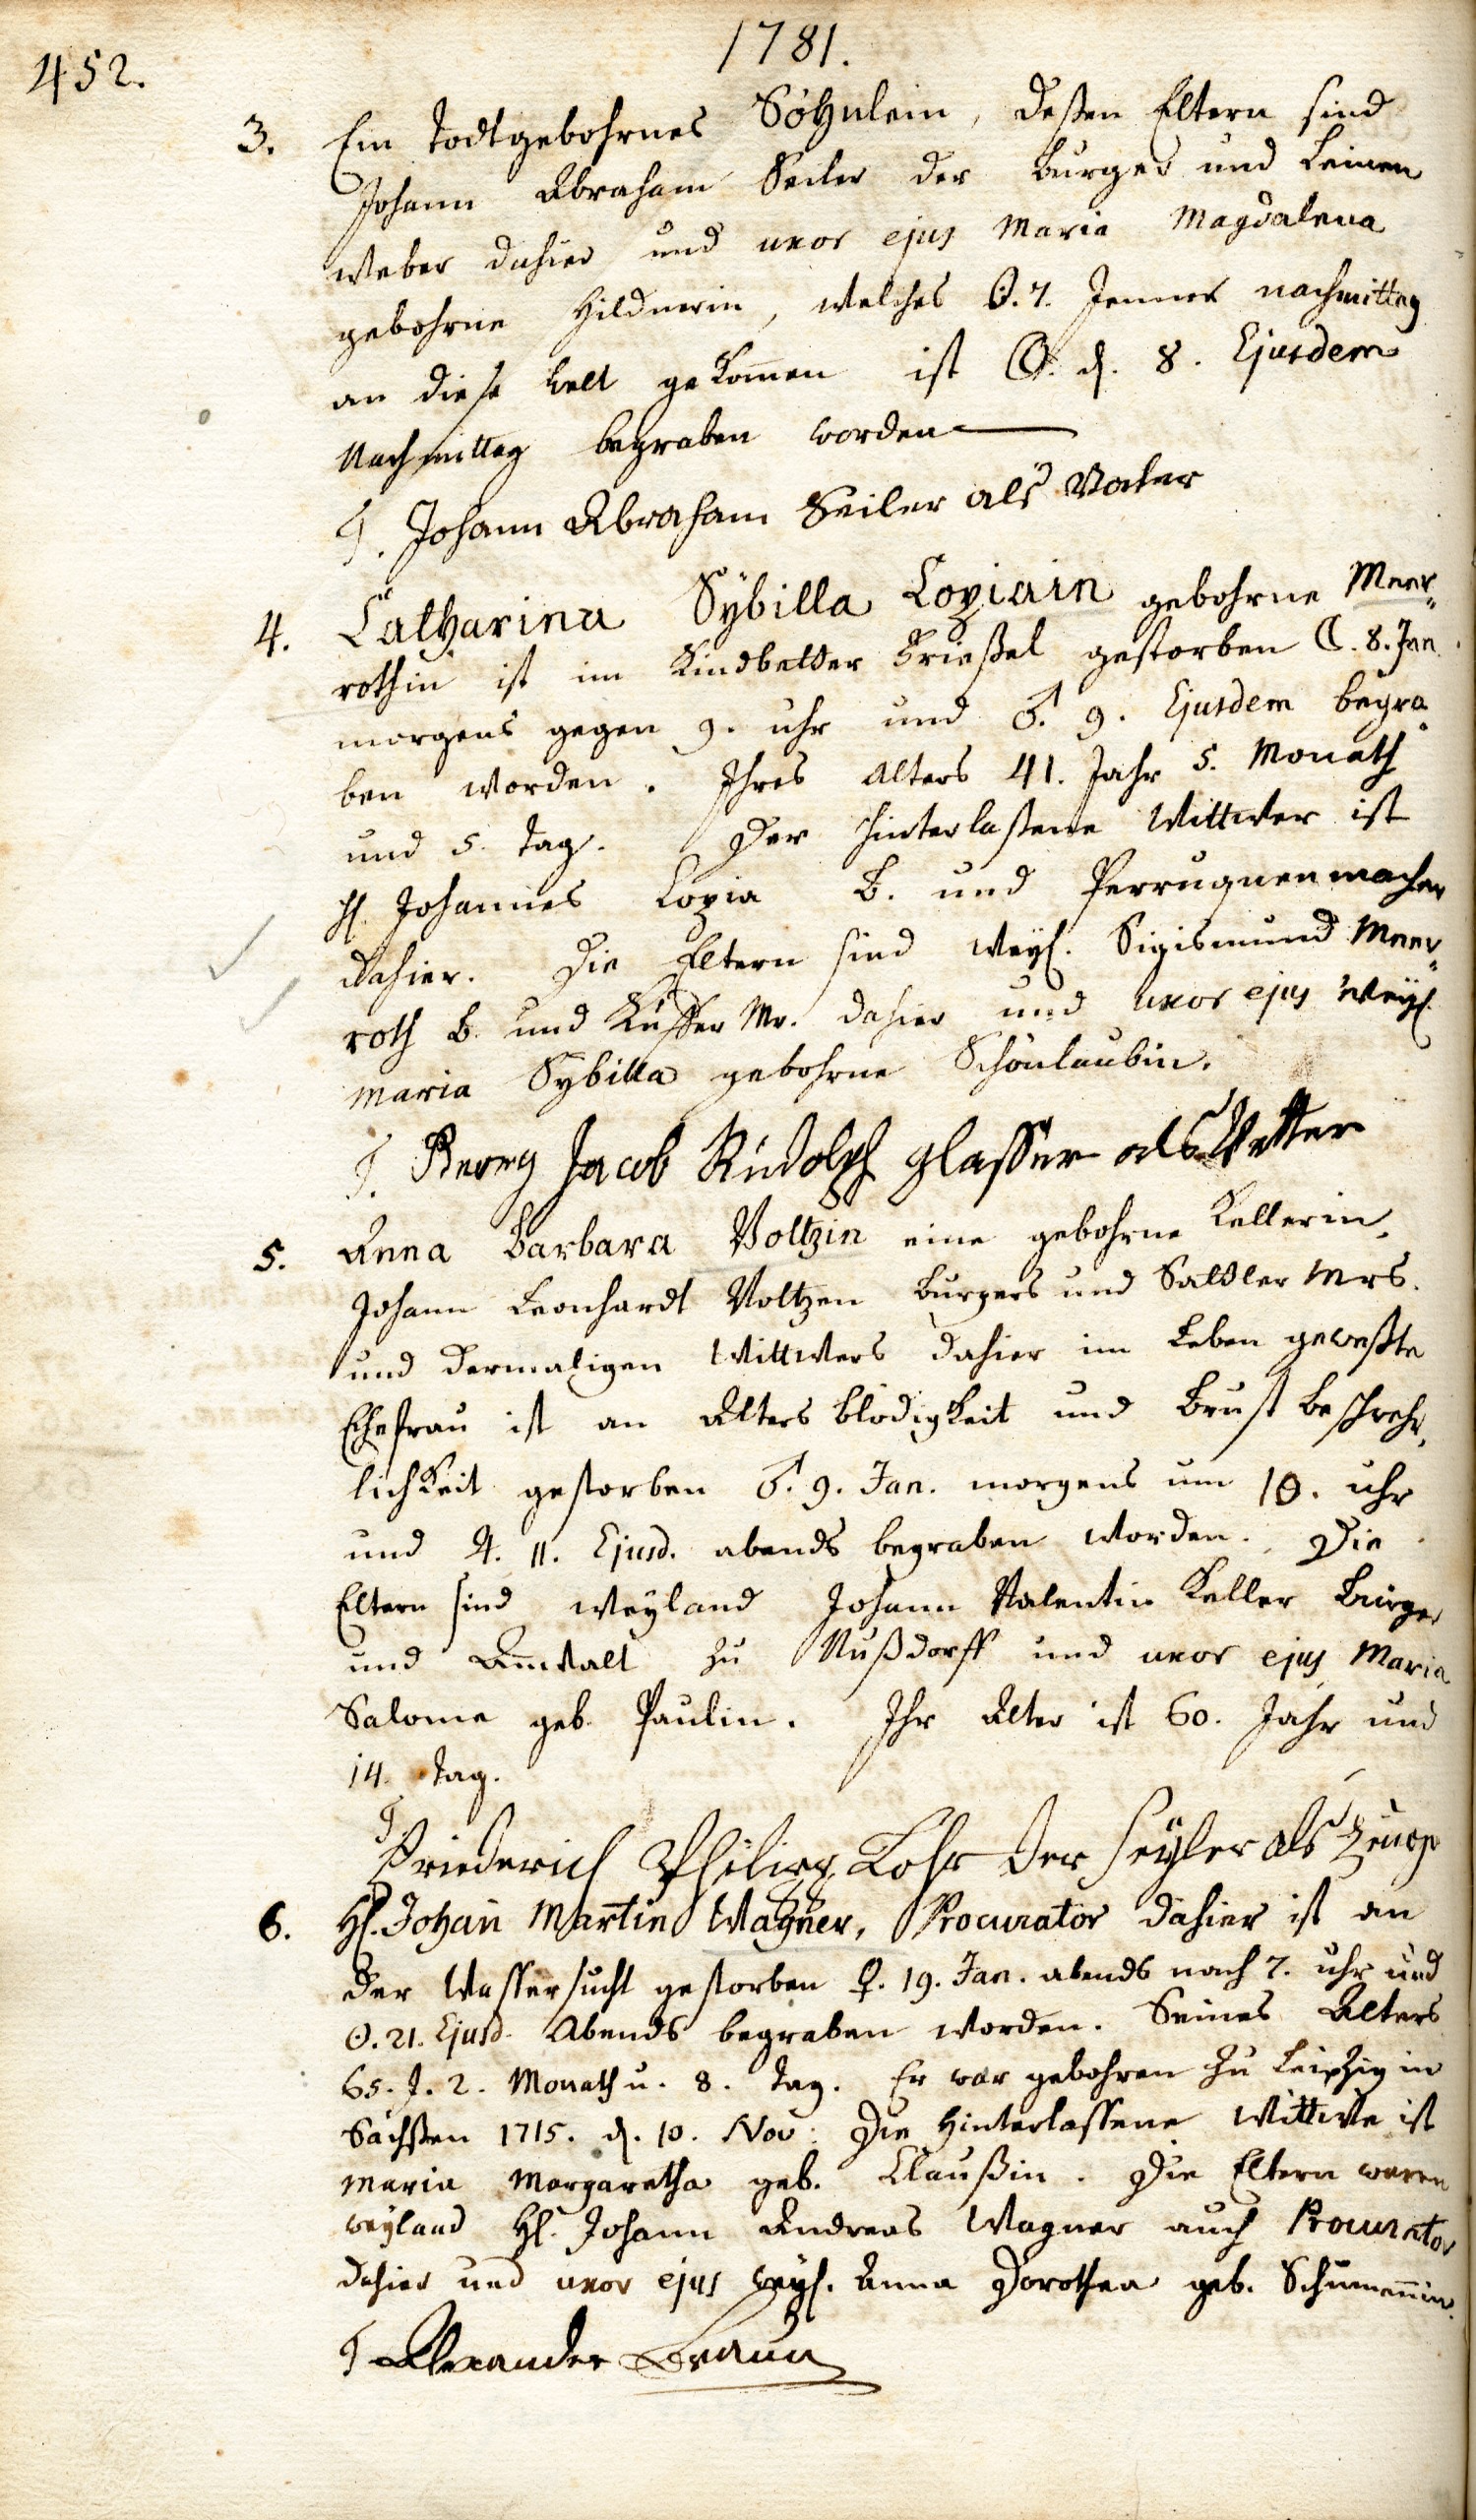 452.
1781.
3. Ein todtgebohrnes Söhnlein, deßen Eltern sind
Johann Abraham Seiler der burger und Leinen
weber dahier und uxor ejus Maria Magdalena
gebohrne Hildnerin, welches ☉. 7. Jenner nachmittag
an diese Welt gekom̄en ist d. 8. Ejusdem
Nachmittag begraben worden
T. Johann Abraham Seiler als Vatter
4. Catharina Sÿbilla Lopiain gebohrne Meer„
rothin ist im Kindbetter gestorben ☾. 8. Jan.
morgens gegen 9. uhr und ♂. 9. Ejusdem begra„
ben worden. Ihres Alters 41. Jahr 5. Monath
und 5. tag. Der hinterlaßene Wittwer ist
H. Johannes Lopia B. und Perruquenmacher
dahier. Die Eltern sind weyl. Sigismund Meer„
roth B. und Küffer Mr. dahier und uxor ejus weyl.
Maria Sybilla gebohrne Schönlaubin.
T. Jacob Rudolph Glasser als Vetter
5. Anna Barbara Voltzin eine gebohrne Kellerin,
Johann Leonhardt Voltzen burgers und Sattler Mrs.
und dermaligen Wittwers dahier im Leben geweßte
Ehefrau ist an Alters blödigkeit und Brust beschwehr„
lichkeit gestorben ♂. 9. Jan. morgens um 10. uhr
und ♃. 11. Ejusd. abends begraben worden. Die
Eltern sind weyland Johann Valentin Keller Burger
und Anwalt zu Nußdorff und uxor ejus Maria
Salome geb. Paulin. Ihr Alter ist 60. Jahr und
14. tag.
T
Friederich Philipp Lohr der Seÿler als Zeuge
6. H. Johan̄ Martin Wagner, Procurator dahier ist an
der Wassersucht gestorben ♀. 19. Jan. abends nach 7. uhr und
☉. 21. Ejusd. Abends begraben worden. Seines Alters
65. J. 2. Monath u. 8. tag. Er war gebohren zu Leipzig in
Sachßen 1715. d. 10. Nov. Die hinterlassene Wittwe ist
Maria Margaretha geb. Claußin. Die Eltern waren
weyland H. Johann Andreas Wagner auch Procurator
dahier und uxor ejus weyl. Anna Dorothea geb. Schuman̄in.
T Alexander Braun